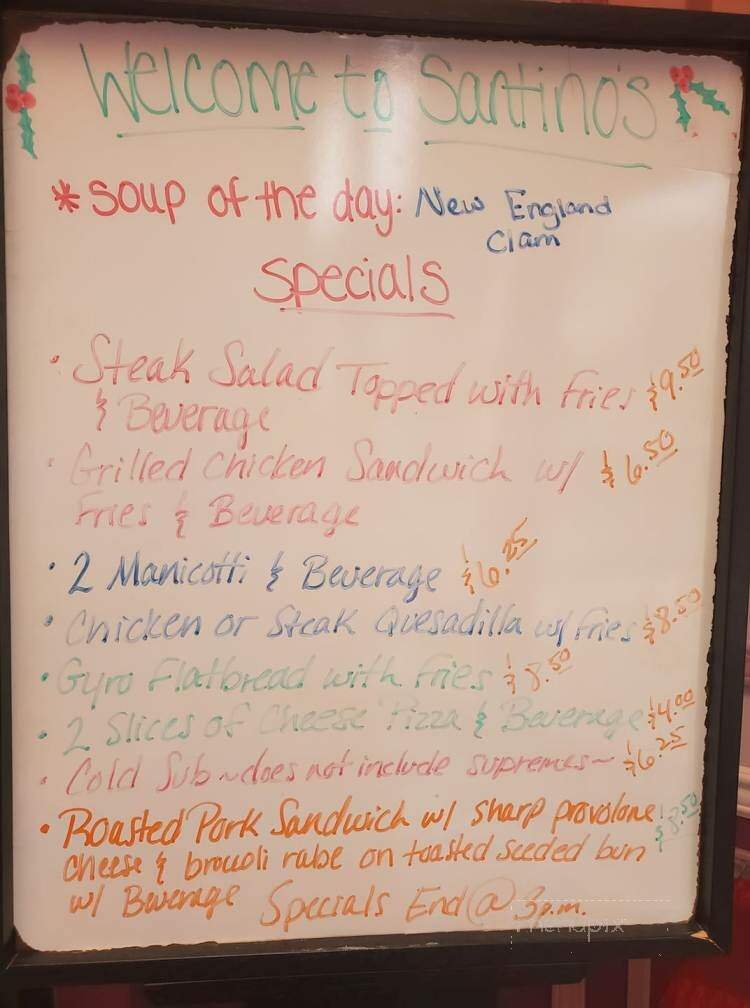 Welcome to Santino's
* Soup of the day: New England
Clam
Specials
• Steak Salad Topped with Fries $9.50
& Beverage
• Grilled Chicken Sandwich w/ $6.50
Fries & Beverage
• 2 Manicotti & Beverage $6.25
• Chicken or Steak Quesadilla w/ Fries $8.50
• Gyro Flatbread with Fries $8.50
• 2 Slices of Cheese Pizza & Beverage $4.00
• Cold Sub ~does not include supremes~ $6.25
• Roasted Pork Sandwich w/ sharp provolone $8.50
cheese & broccoli rabe on toasted seeded bun
w/ Beverage Specials End @ 3p.m.
menupix